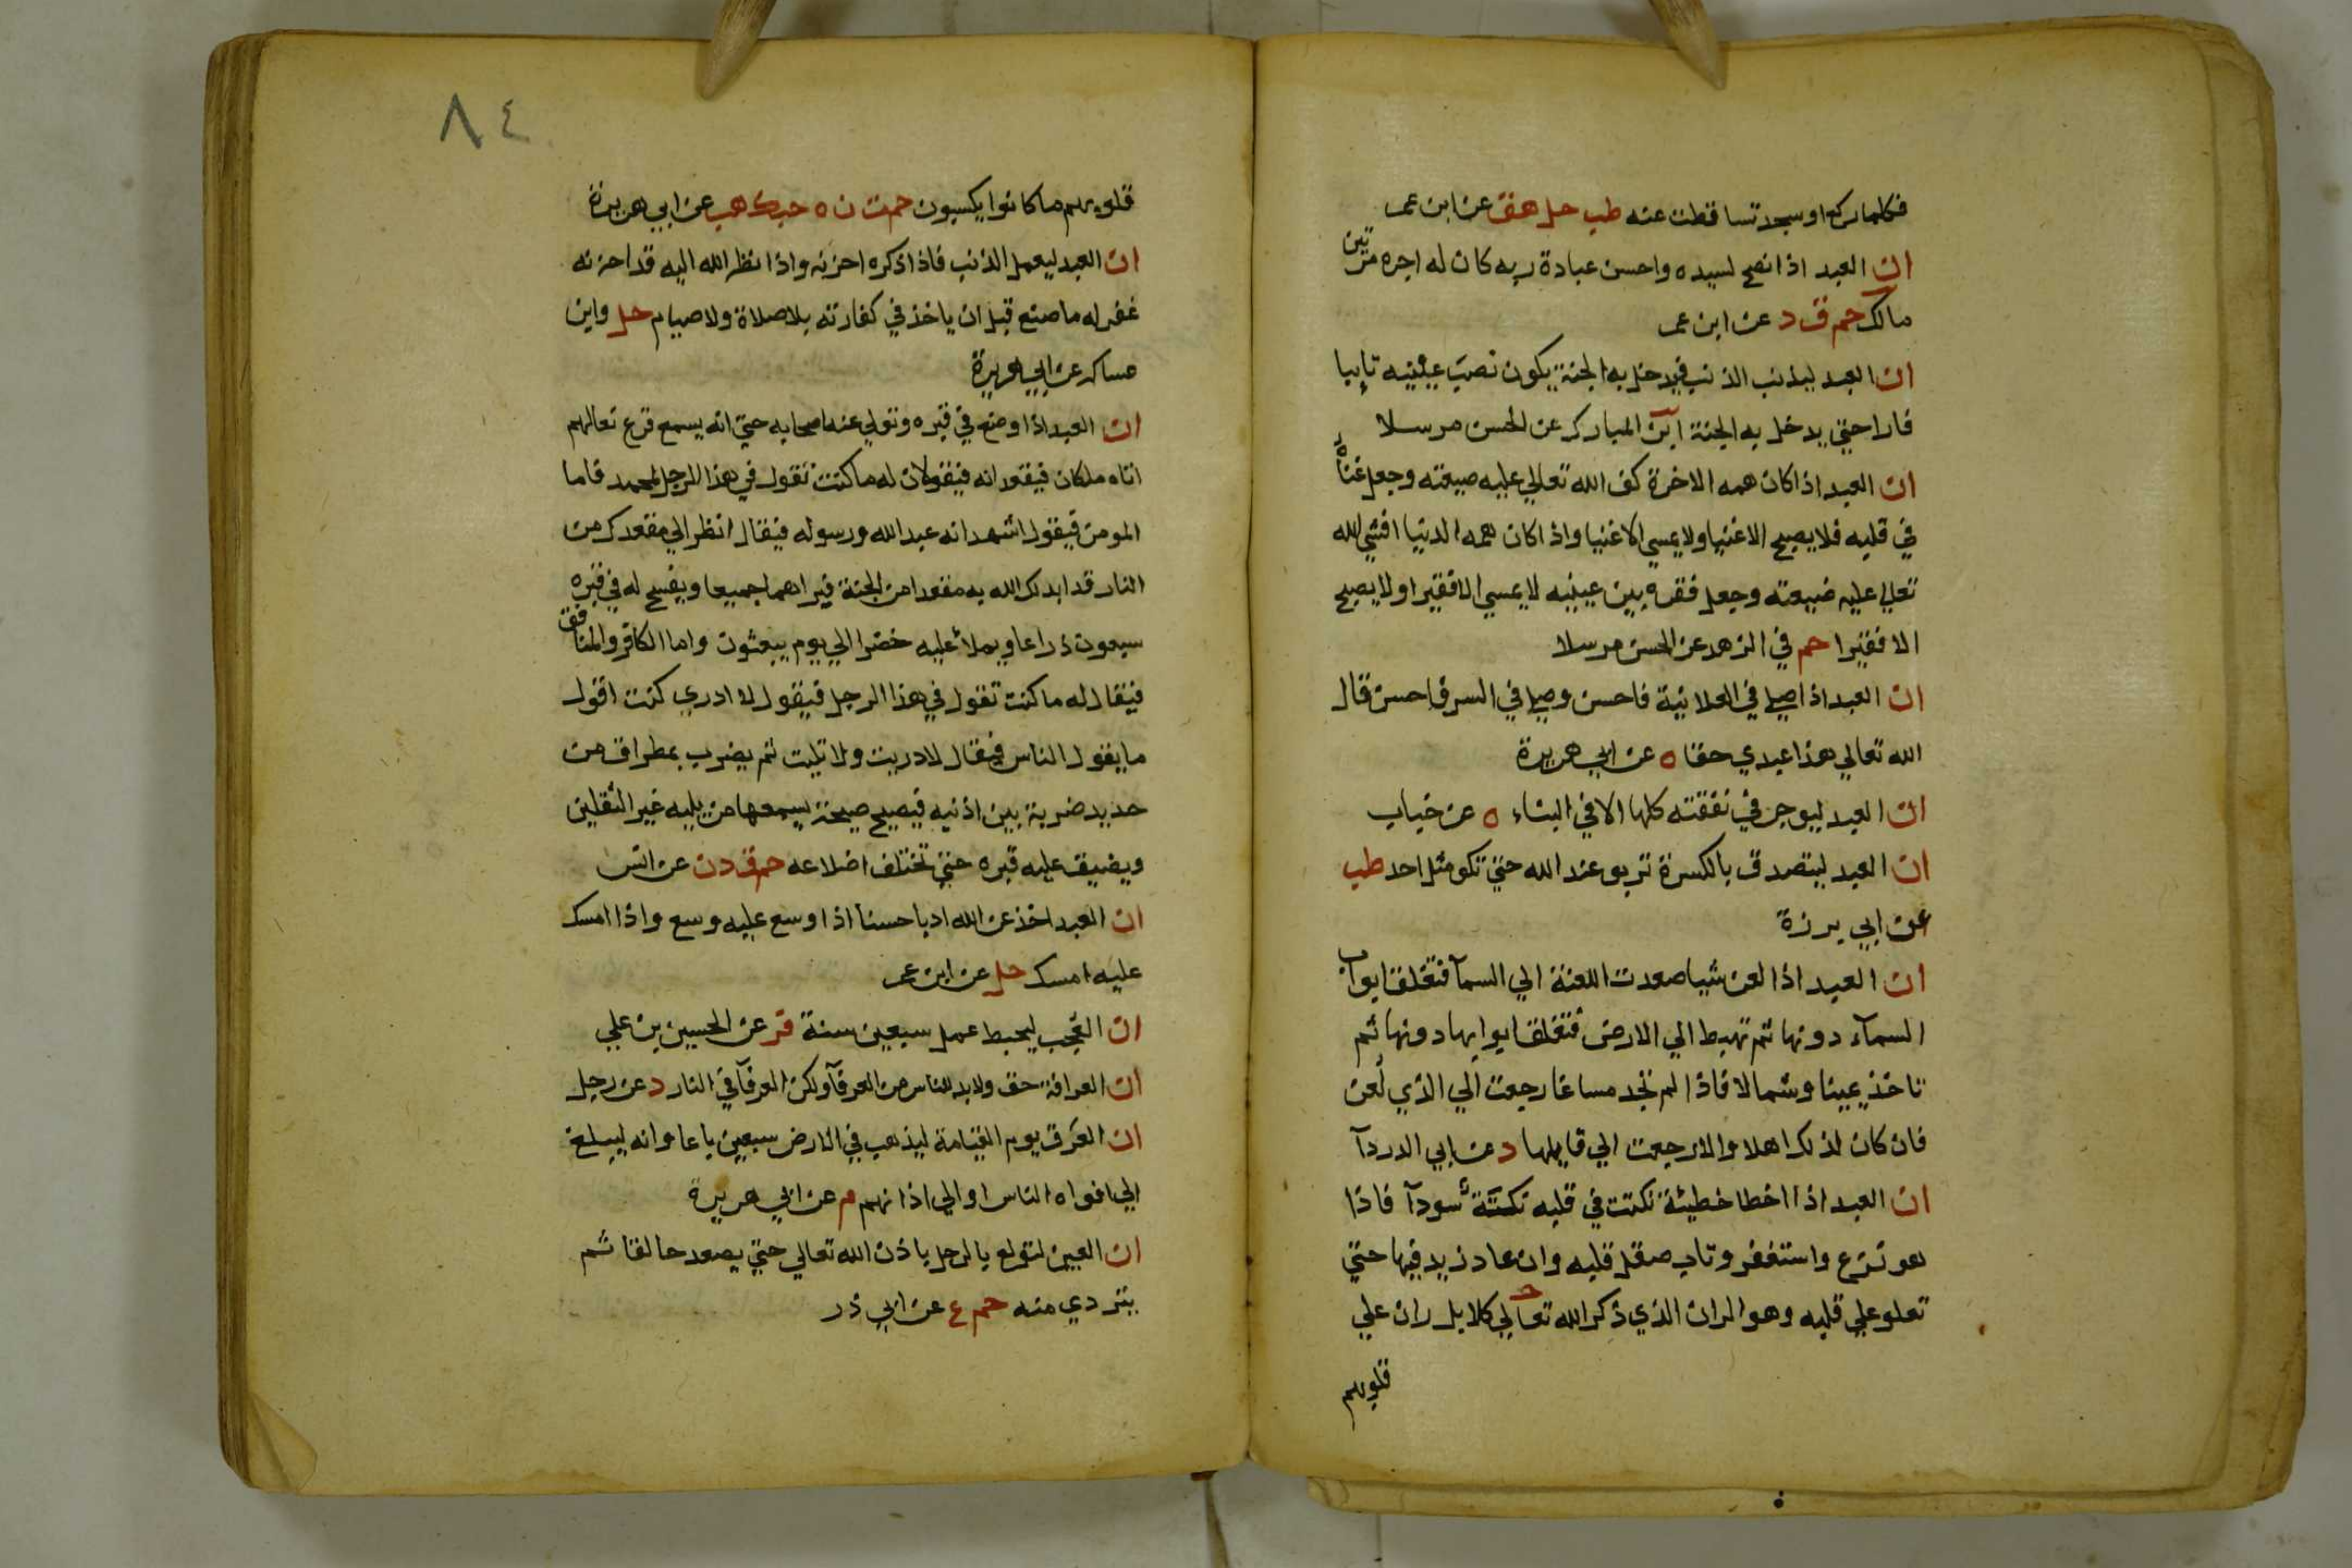 فكلما ركع او سجد تساقطت عنه طب حل هق عن ابن عمر
ان العبد اذا نصح لسيده واحسن عبادة ربه كان له اجره مرتين
مالك حم ق د عن ابن عمر
ان العبد ليذنب الذنب فيدخل به الجنة يكون نصب عينيه تايبا
فارا حتي يدخل به الجنة ابن المبارك عن الحسن مرسلا
ان العبد اذا كان همه الاخرة كف الله تعالي عليه ضيعته وجعل غناه
في قلبه فلا يصبح الا غنيا ولا يمسي الا غنيا واذا كان همه الدنيا افشي الله
تعالي عليه ضيعته وجعل فقره بين عينيه لا يمسي الا فقيرا ولا يصبح
الا فقيرا حم في الزهد عن الحسن مرسلا
ان العبد اذا صلي في العلانية فاحسن وصلي في السر فاحسن قال
الله تعالي هذا عبدي حقا ه عن ابي هريرة
ان العبد ليوجر في نفقته كلها الا في البناء ه عن خباب
ان العبد ليتصدق بالكسرة تربو عند الله حتي تكو مثل احد طب
عن ابي برزة
ان العبد اذا لعن شيا صعدت اللعنة الي السمآ فتغلق ابواب
السمآء دونها ثم تهبط الي الارض فتغلق ابوابها دونها ثم
تاخذ يمينا وشمالا فاذا لم تجد مساغا رجعت الي الذي لُعن
فان كان لذلك اهلا والا رجعت الي قايلها د عن ابي الدردآ
ان العبد اذا اخطا خطيئة نكتت في قلبه نكتة سودآ فاذا
هو نزع واستغفر وتاب صقل قلبه وان عاد زيد فيها حتي
تعلو علي قلبه وهو الران الذي ذكر الله تعالي كلا بل ران علي
قلوبهم
٨٤
قلوبهم ما كانوا يكسبون حم ت ن ه حب ك هب عن ابي هريرة
ان العبد ليعمل الذنب فاذا ذكره احزنه واذا نظر الله اليه قد احزنه
غفر له ما صنع قبل ان ياخذ في كفارته بلا صلاة ولا صيام حل وابن
عساكر عن ابي هريرة
ان العبد اذا وضع في قبره وتولي عنه اصحابه حتي انه يسمع قرع نعالهم
اتاه ملكان فيقعدانه فيقولان له ما كنت تقول في هذا الرجل لمحمد فاما
المومن فيقول اشهد انه عبد الله ورسوله فيقال انظر الي مقعدك من
النار قد ابدلك الله به مقعدا من الجنة فيراهما جميعا ويفسح له في قبره
سبعون ذراعا ويملأ عليه خضرا الي يوم يبعثون واما الكافر والمنافق
فيقال له ما كنت تقول في هذا الرجل فيقول لا ادري كنت اقول
ما يقول الناس فيقال لا دريت ولا تليت ثم يضرب بمطراق من
حديد ضربة بين اذنيه فيصيح صيحة يسمعها من يليه غير الثقلين
ويضيق عليه قبره حتي تختلف اضلاعه حم ق د ن عن انس
ان العبد اخذ عن الله ادبا حسنا اذا وسع عليه وسع واذا امسك
عليه امسك حل عن ابن عمر
ان العجب ليحبط عمل سبعين سنة فر عن الحسين بن علي
ان العرافة حق ولا بد للناس من العرفآ ولكن العرفآ في النار د عن رجل
ان العرق يوم القيامة ليذهب في الارض سبعين باعا وانه ليبلغ
الي افواه الناس او الي اذانهم م عن ابي هريرة
ان العين لتولع بالرجل باذن الله تعالي حتي يصعد حالقا ثم
يتردي منه حم ع عن ابي ذر